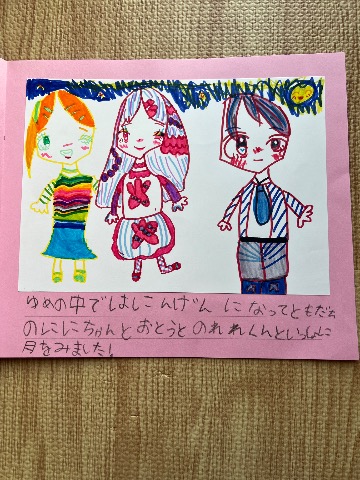 ゆめの中ではしにんげんになってともだち
のににちゃんとおとうとのれれくんといっしょに
月をみました!